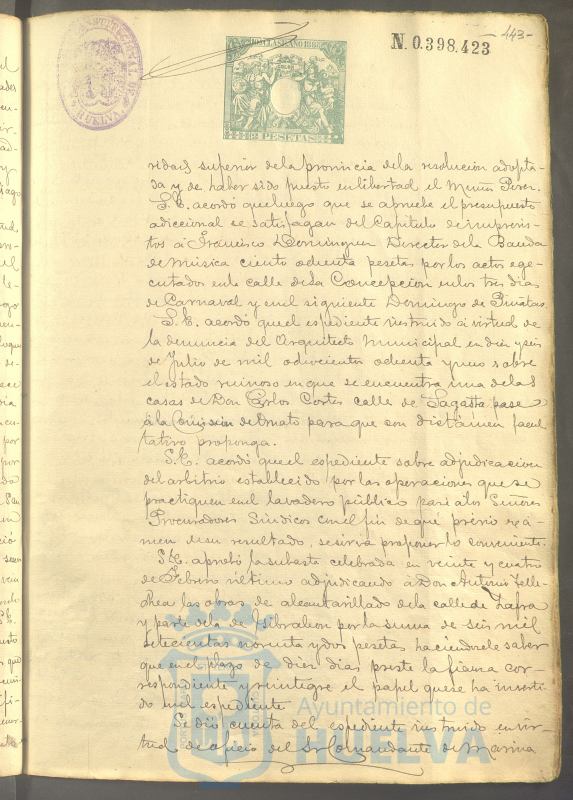 -443-
N. 0.398.423
HUELVA
2 PESETAS
ridad superior de la provincia de la resolucion adopta-
da y de haber sido puesto en libertad el Muñoz Perez.
S.E. acordó que luego que se apruebe el presupuesto
adiccional se satisfagan del Capitulo de imprevis-
tos á Francisco Dominguez Director de la Banda
de Musica ciento ochenta pesetas por los actos eje-
cutados en la calle de la Concepcion en los tres dias
de Carnaval y en el siguiente Domingo de Piñatas.
S.E. acordó que el espediente instruido á virtual de
la denuncia del Arquitecto municipal en diez y seis
de Julio de mil ochocientos ochenta y uno sobre
el estado ruinoso en que se encuentra una de las
casas de Don Carlos Cortes calle de Sagasta pase
á la Comision de Ornato para que con dictámen facul-
tativo proponga.
S.E. acordó que el espediente sobre adjudicacion
del arbitrio establecido por las operaciones que se
practiquen en el lavadero público pase á los Señores
Procuradores Sindicos con el fin de que prévio exá-
men de su resultado, se sirva proponer lo conveniente.
S.E. aprobó la subasta celebrada en veinte y cuatro
de Febrero último adjudicando á Don Antonio Telle-
chea las obras de alcantarillado de la calle de Zafra
y parte de la de Gibraleon por la suma de seis mil
setecientas noventa y dos pesetas haciendosele saber
que en el plazo de diez dias preste la fianza cor-
respondiente y reintegre el papel que se ha inverti-
do en el espediente.
Se dió cuenta del espediente instruido en vir-
tud de oficio del Sr Comandante de Marina
Ayuntamiento de
HUELVA